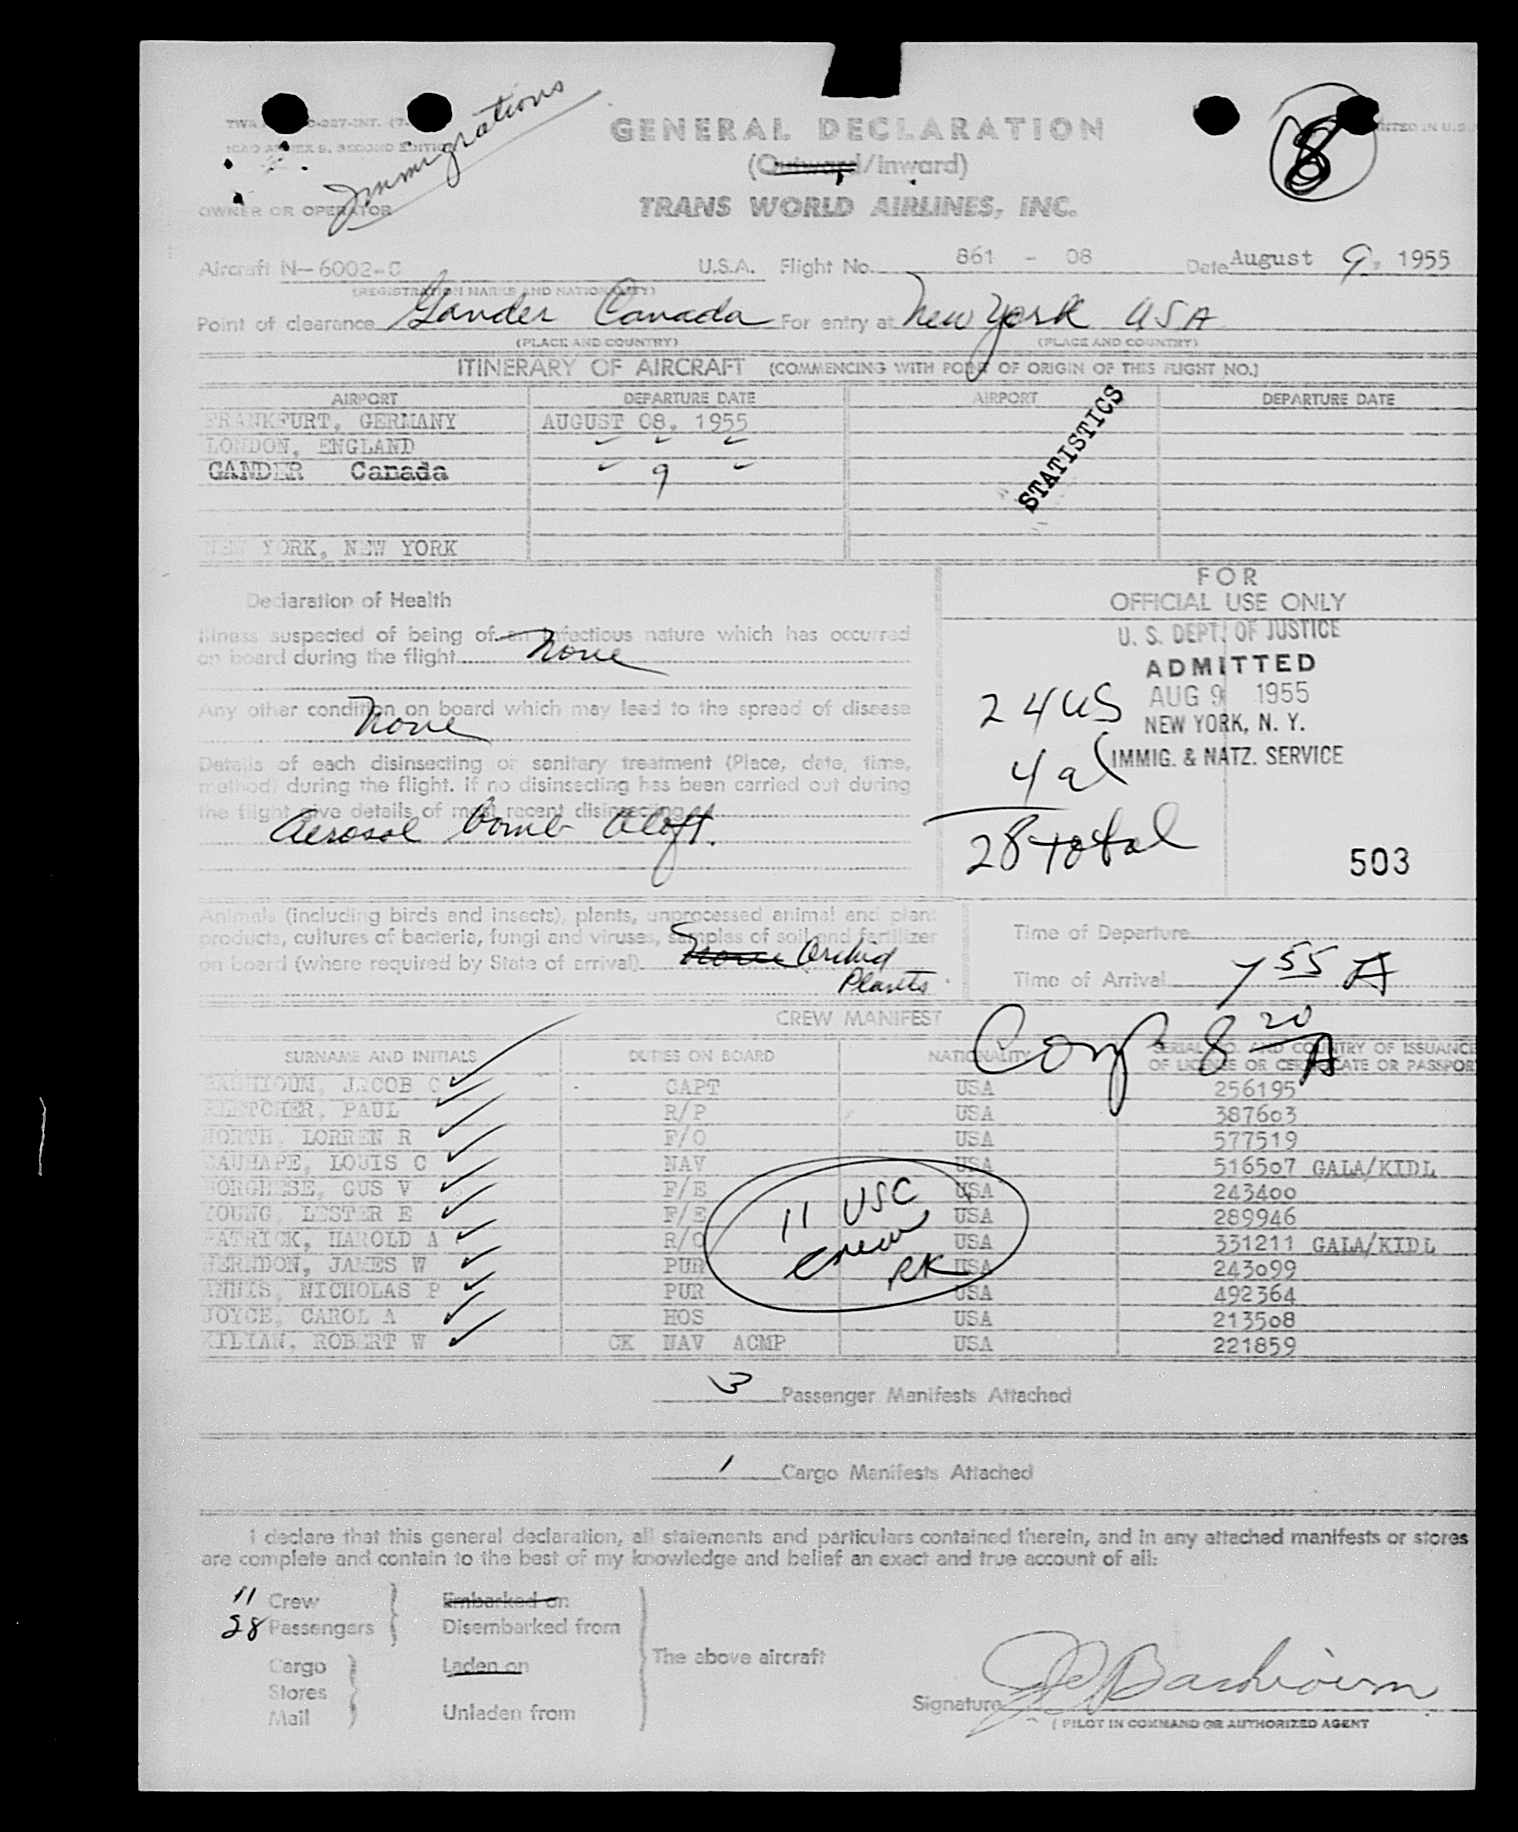 Immigrations
GENERAL DECLARATION
8
(Outward/Inward)
OWNER OR OPERATOR
TRANS WORLD AIRLINES, INC.
Aircraft N-6002-C U.S.A. Flight No. 861 - 08 Date August 9, 1955
(REGISTRATION MARKS AND NATIONALITY)
Point of clearance Gander Canada For entry at New York USA
(PLACE AND COUNTRY) (PLACE AND COUNTRY)
ITINERARY OF AIRCRAFT (COMMENCING WITH POINT OF ORIGIN OF THIS FLIGHT NO.)
AIRPORT DEPARTURE DATE AIRPORT DEPARTURE DATE
FRANKFURT, GERMANY AUGUST 08, 1955
LONDON, ENGLAND
GANDER Canada 9
STATISTICS
NEW YORK, NEW YORK
FOR
OFFICIAL USE ONLY
U. S. DEPT. OF JUSTICE
ADMITTED
AUG 9 1955
NEW YORK, N. Y.
IMMIG. & NATZ. SERVICE
24 US
4 al
28 total
503
Declaration of Health
Illness suspected of being of an infectious nature which has occurred
on board during the flight None
Any other condition on board which may lead to the spread of disease
None
Details of each disinsecting or sanitary treatment (Place, date, time,
method) during the flight. If no disinsecting has been carried out during
the flight give details of most recent disinsecting
Aerosol bomb aloft.
Animals (including birds and insects), plants, unprocessed animal and plant
products, cultures of bacteria, fungi and viruses, samples of soil and fertilizer
on board (where required by State of arrival) None Orchid
Plants
Time of Departure
Time of Arrival 7 55 A
CREW MANIFEST
Comp 8 20 A
SURNAME AND INITIALS DUTIES ON BOARD NATIONALITY SERIAL NO. AND COUNTRY OF ISSUANCE
OF LICENSE OR CERTIFICATE OR PASSPORT
BASHIOUM, JACOB C CAPT USA 256195
FLETCHER, PAUL R/P USA 387603
NORTH, LORREN R F/O USA 577519
CAUHAPE, LOUIS C NAV USA 516507 GALA/KIDL
BORGHESE, GUS V F/E USA 243400
YOUNG, LESTER E F/E USA 289946
PATRICK, HAROLD A R/O USA 331211 GALA/KIDL
HERNDON, JAMES W PUR USA 243099
ANNIS, NICHOLAS P PUR USA 492364
JOYCE, CAROL A HOS USA 213508
KILIAN, ROBERT W CK NAV ACMP USA 221859
11 USC
crew
RK
3 Passenger Manifests Attached
1 Cargo Manifests Attached
I declare that this general declaration, all statements and particulars contained therein, and in any attached manifests or stores
are complete and contain to the best of my knowledge and belief an exact and true account of all:
11 Crew Embarked on
28 Passengers Disembarked from
The above aircraft
Cargo Laden on
Stores
Mail Unladen from
Signature JC Bashioum
(PILOT IN COMMAND OR AUTHORIZED AGENT